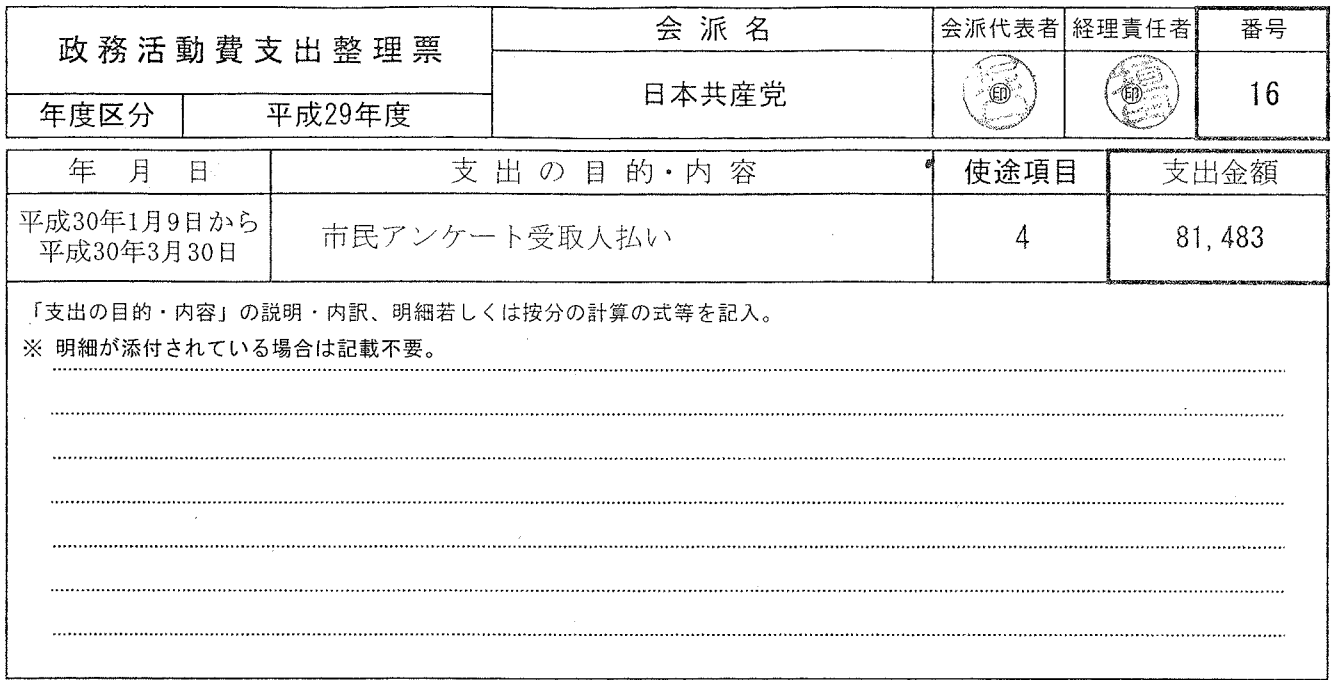 政務活動費支出整理票
会派名
会派代表者
経理責任者
番号
年度区分
平成29年度
日本共産党
印
印
16
年月日
支出の目的・内容
使途項目
支出金額
平成30年1月9日から
平成30年3月30日
市民アンケート受取人払い
4
81,483
「支出の目的・内容」の説明・内訳、明細若しくは按分の計算の式等を記入。
※ 明細が添付されている場合は記載不要。